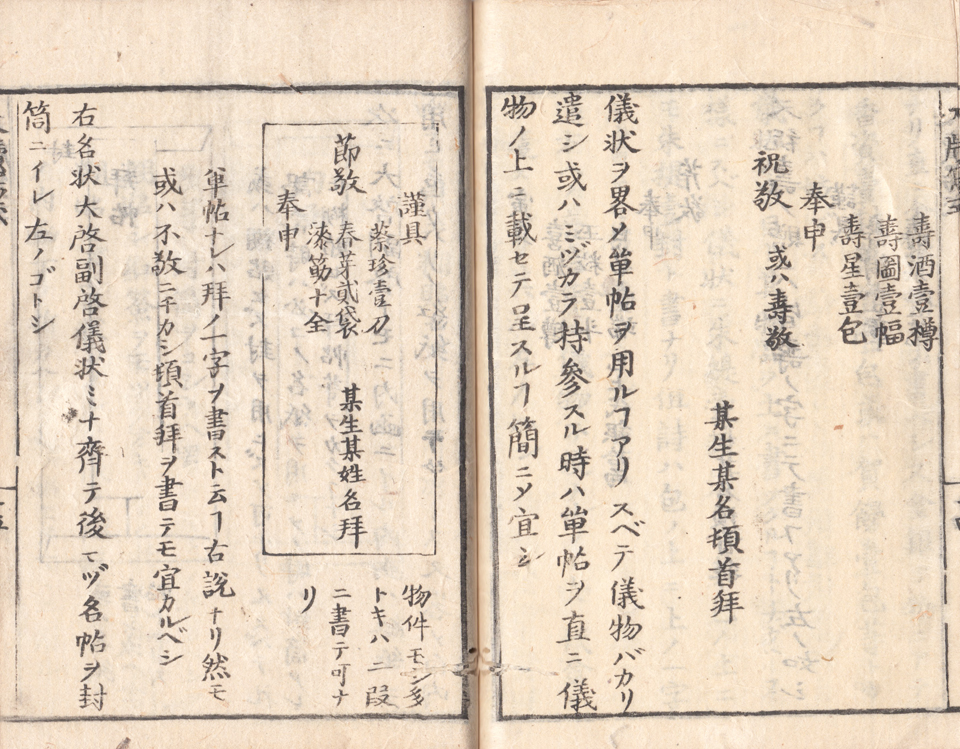 壽酒壹樽
壽圖壹幅
壽星壹包
奉申
祝敬 或ハ壽敬
某生某名頓首拜
儀状ヲ畧メ単帖ヲ用ルヿアリ スベテ儀物バカリ
遣シ或ハミヅカラ持參スル時ハ単帖ヲ直ニ儀
物ノ上ニ載セテ呈スルヿ簡ニソ宜シ
謹具
蔡珍壹刀
春芽貳袋
漆筯十全
節敬
奉申
某生某姓名拜
物件モシ多
トキハ二段
ニ書テ可ナ
リ
単帖ナレハ拜ノ一字ヲ書スト云ヿ右説ナリ然モ
或ハ不敬ニチカシ頓首拜ヲ書テモ宜カルベシ
右名状大啓副啓儀状ミナ齊テ後マヅ名帖ヲ封
筒ニイレ左ノゴトシ